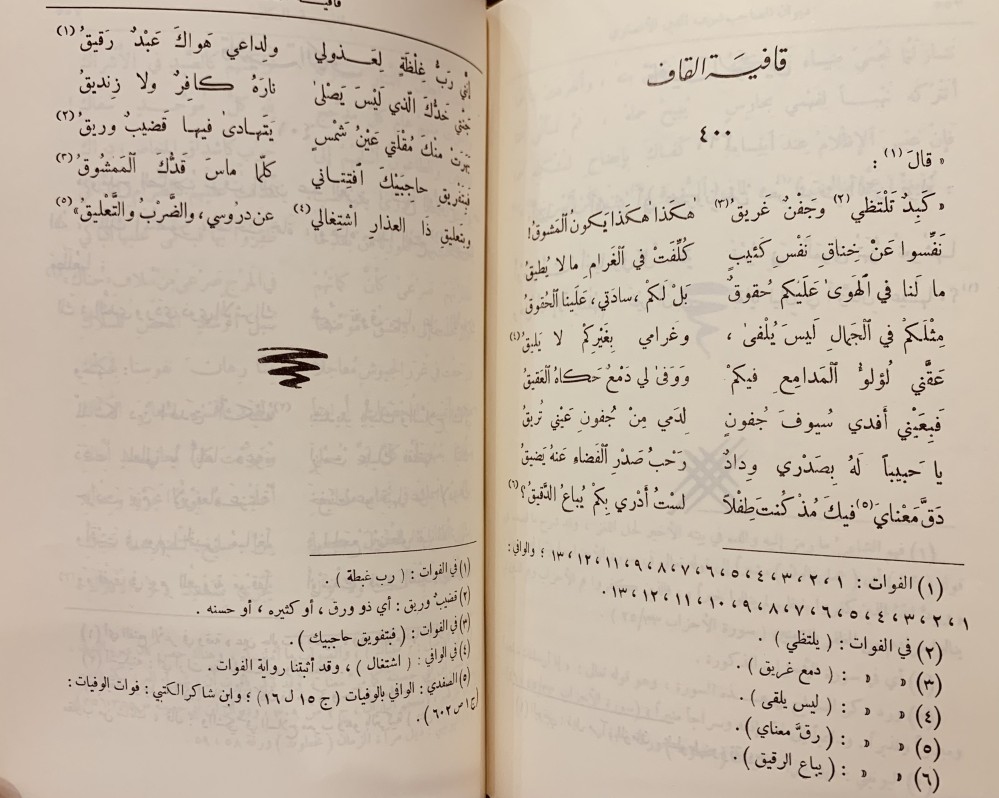 قافية القاف
٤٠٠
« قالَ (١) :
« كَبِدٌ تَلْتَظي (٢) وجَفنٌ غريقُ (٣) هٰكذا هٰكذا يكونُ ٱلمَشوقُ !
نَفِّسوا عَنْ خِناقِ نَفْسِ كَئيبٍ كُلِّفَتْ في ٱلغَرامِ ما لا يُطيقُ
ما لَنا في ٱلهوىٰ عَلَيكم حُقوقٌ بَلْ لَكمْ ، سادَتي ، عَلَينا ٱلحُقوقُ
مِثْلُكمْ في ٱلجَمالِ لَيسَ يُلْفىٰ ، وغَرامي بِغَيْرِكمْ لا يَليقُ (٤)
عَقَّني لُؤلؤُ ٱلمَدامِعِ فيكمْ وَوَفىٰ لي دَمْعٌ حَكاهُ ٱلعَقيقُ
فَبِعَيْني أَفدي سُيوفَ جُفونٍ لِدَمي مِنْ جُفونِ عَيْني تُريقُ
يا حَبيباً لَهُ بِصَدْري وِدادٌ رَحْبُ صَدْرِ ٱلفَضاءِ عَنهُ يَضيقُ
دَقَّ مَعْنايَ (٥) فيكَ مُذْ كُنتَ طِفْلاً لستُ أَدْري بِكمْ يُباعُ الدَّقيقُ ؟ (٦)
(١) الفوات : ١ ، ٢ ، ٣ ، ٤ ، ٥ ، ٦ ، ٧ ، ٨ ، ٩ ، ١١ ، ١٢ ، ١٣ ؛ والوافي :
١ ، ٢ ، ٣ ، ٤ ، ٥ ، ٦ ، ٧ ، ٨ ، ٩ ، ١٠ ، ١١ ، ١٢ ، ١٣ .
(٢) في الفوات : ( يلتظي ) .
(٣) » » : ( دمع غريق ) .
(٤) » » : ( ليس يلقى ) .
(٥) » » : ( رقَّ معناي ) .
(٦) » » : ( يباع الرقيق ) .
رَبُّ غِلْظَةٍ لِعَذولي ولِداعي هَواكَ عَبْدٌ رَقيقُ (١)
خَدُّكَ الَّذي لَيْسَ يَصْلىٰ نارَهُ كافِرٌ ولا زِنديقُ
مِنْكَ مُقْلَتي عَيْنُ شَمْسٍ يَتَهادىٰ فيها قَضيبٌ وريقُ (٢)
فَبِتَفْريقِ حاجِبَيْكَ ٱفتِتاني كلَّما ماسَ قَدُّكَ ٱلمَمْشوقُ (٣)
وبتعليقِ ذا العذارِ ٱشْتِغالي (٤) عن دروسي ، والضَّرْبُ والتَّعْليقُ » (٥)
(١) في الفوات : ( رب غبطة ) .
(٢) قضيب وريق : أي ذو ورق ، أو كثيره ، أو حسنه .
(٣) في الفوات : ( فبتفويق حاجبيك ) .
(٤) في الوافي : ( اشتغال ) ، وقد أثبتنا رواية الفوات .
(٥) الصفدي : الوافي بالوفيات ( ج ١٥ ل ١٦ ) ؛ وابن شاكر الكتبي : فوات الوفيات :
( ج ١ ص ٦٠٢ ) .